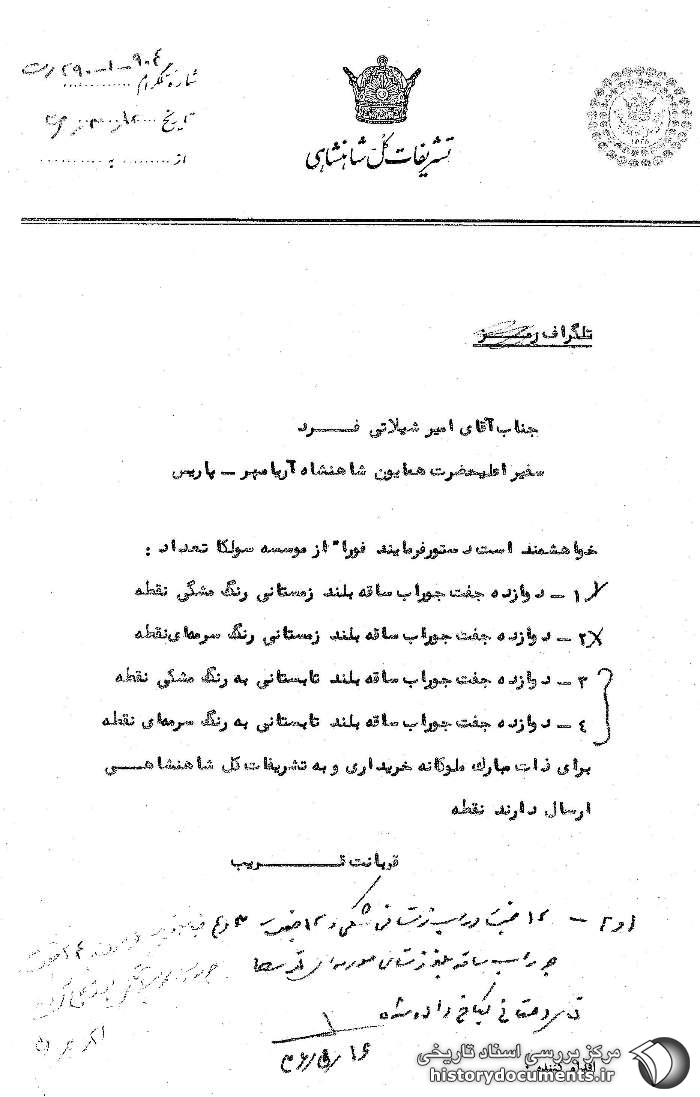 شماره تلگرام ۹۰۴-۱-۲۹۰
تاریخ
از ........ به ........
تشریفات کل شاهنشاهی
تلگراف رمز
جناب آقای امیر شیلاتی فرد
سفیر اعلیحضرت همایون شاهنشاه آریامهر - پاریس
خواهشمند است دستور فرمایند فورا" از موسسه سولکا تعداد :
۱ - دوازده جفت جوراب ساقه بلند زمستانی رنگ مشگی نقطه
۲ - دوازده جفت جوراب ساقه بلند زمستانی رنگ سرمه‌ای نقطه
۳ - دوازده جفت جوراب ساقه بلند تابستانی به رنگ مشکی نقطه
٤ - دوازده جفت جوراب ساقه بلند تابستانی به رنگ سرمه‌ای نقطه
برای ذات مبارك ملوکانه خریداری و به تشریفات کل شاهنشاهی
ارسال دارند نقطه
قربانت قریب
۱و۲ - ۱۲ جفت جوراب زمستانی مشکی و ۱۲ جفت
جوراب ساقه بلند زمستانی سورمه‌ای توسط
داده شد
اقدام کننده :
مرکز بررسی اسناد تاریخی
historydocuments.ir